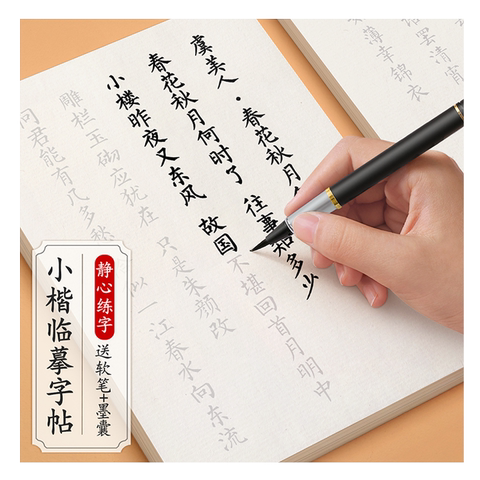 罢清宵
薄幸锦衣
虞美人·春花秋月
春花秋月何时了 往事知多少
小楼昨夜又东风 故国不堪回首月明中
雕栏玉砌应犹在 只是朱颜改
君能有几多 似一江春水向东流
静心练字
送软笔+墨囊
小楷临摹字帖